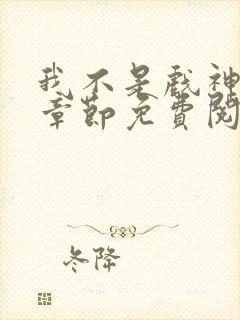 我不是戏神
章节免费阅
冬降